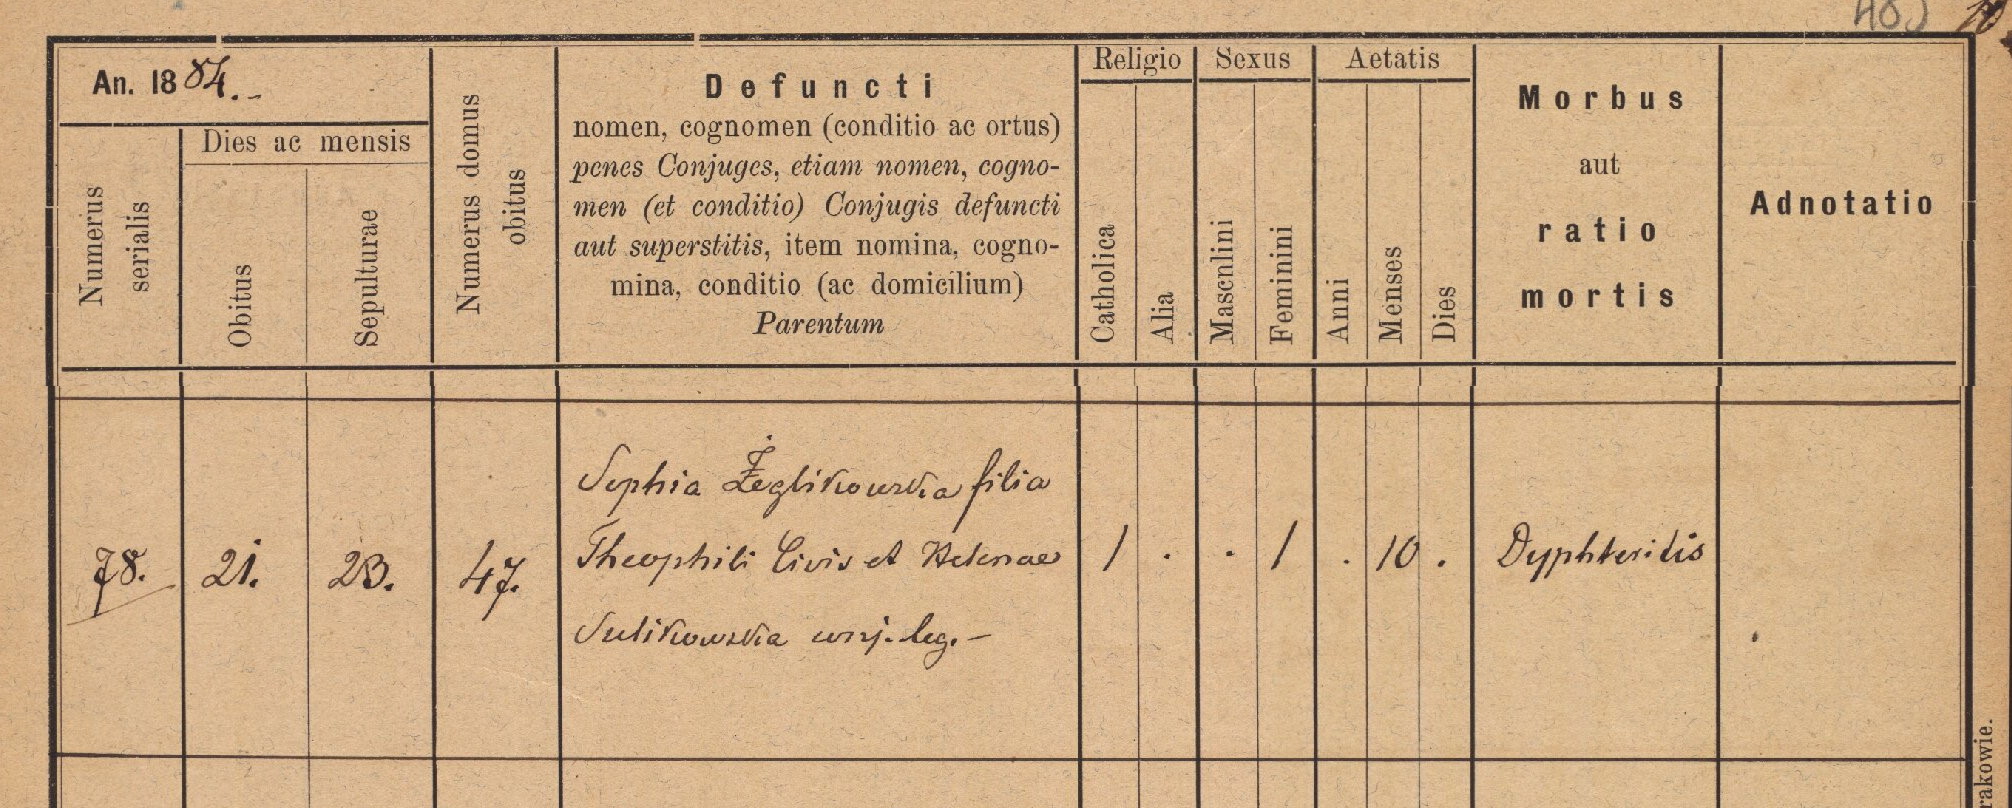 An. 1884.-
Dies ac mensis
Numerus serialis
Obitus
Sepulturae
Numerus domus obitus
Defuncti
nomen, cognomen (conditio ac ortus)
penes Conjuges, etiam nomen, cogno-
men (et conditio) Conjugis defuncti
aut superstitis, item nomina, cogno-
mina, conditio (ac domicilium)
Parentum
Religio
Catholica
Alia
Sexus
Masculini
Feminini
Aetatis
Anni
Menses
Dies
Morbus
aut
ratio
mortis
Adnotatio
78.
21.
23.
47.
Sophia Żeglikowska filia
Theophili Civis et Helenae
Sulikowska conj. leg.-
1 . . 1 . 10 .
Dyphteritis
rakowie.